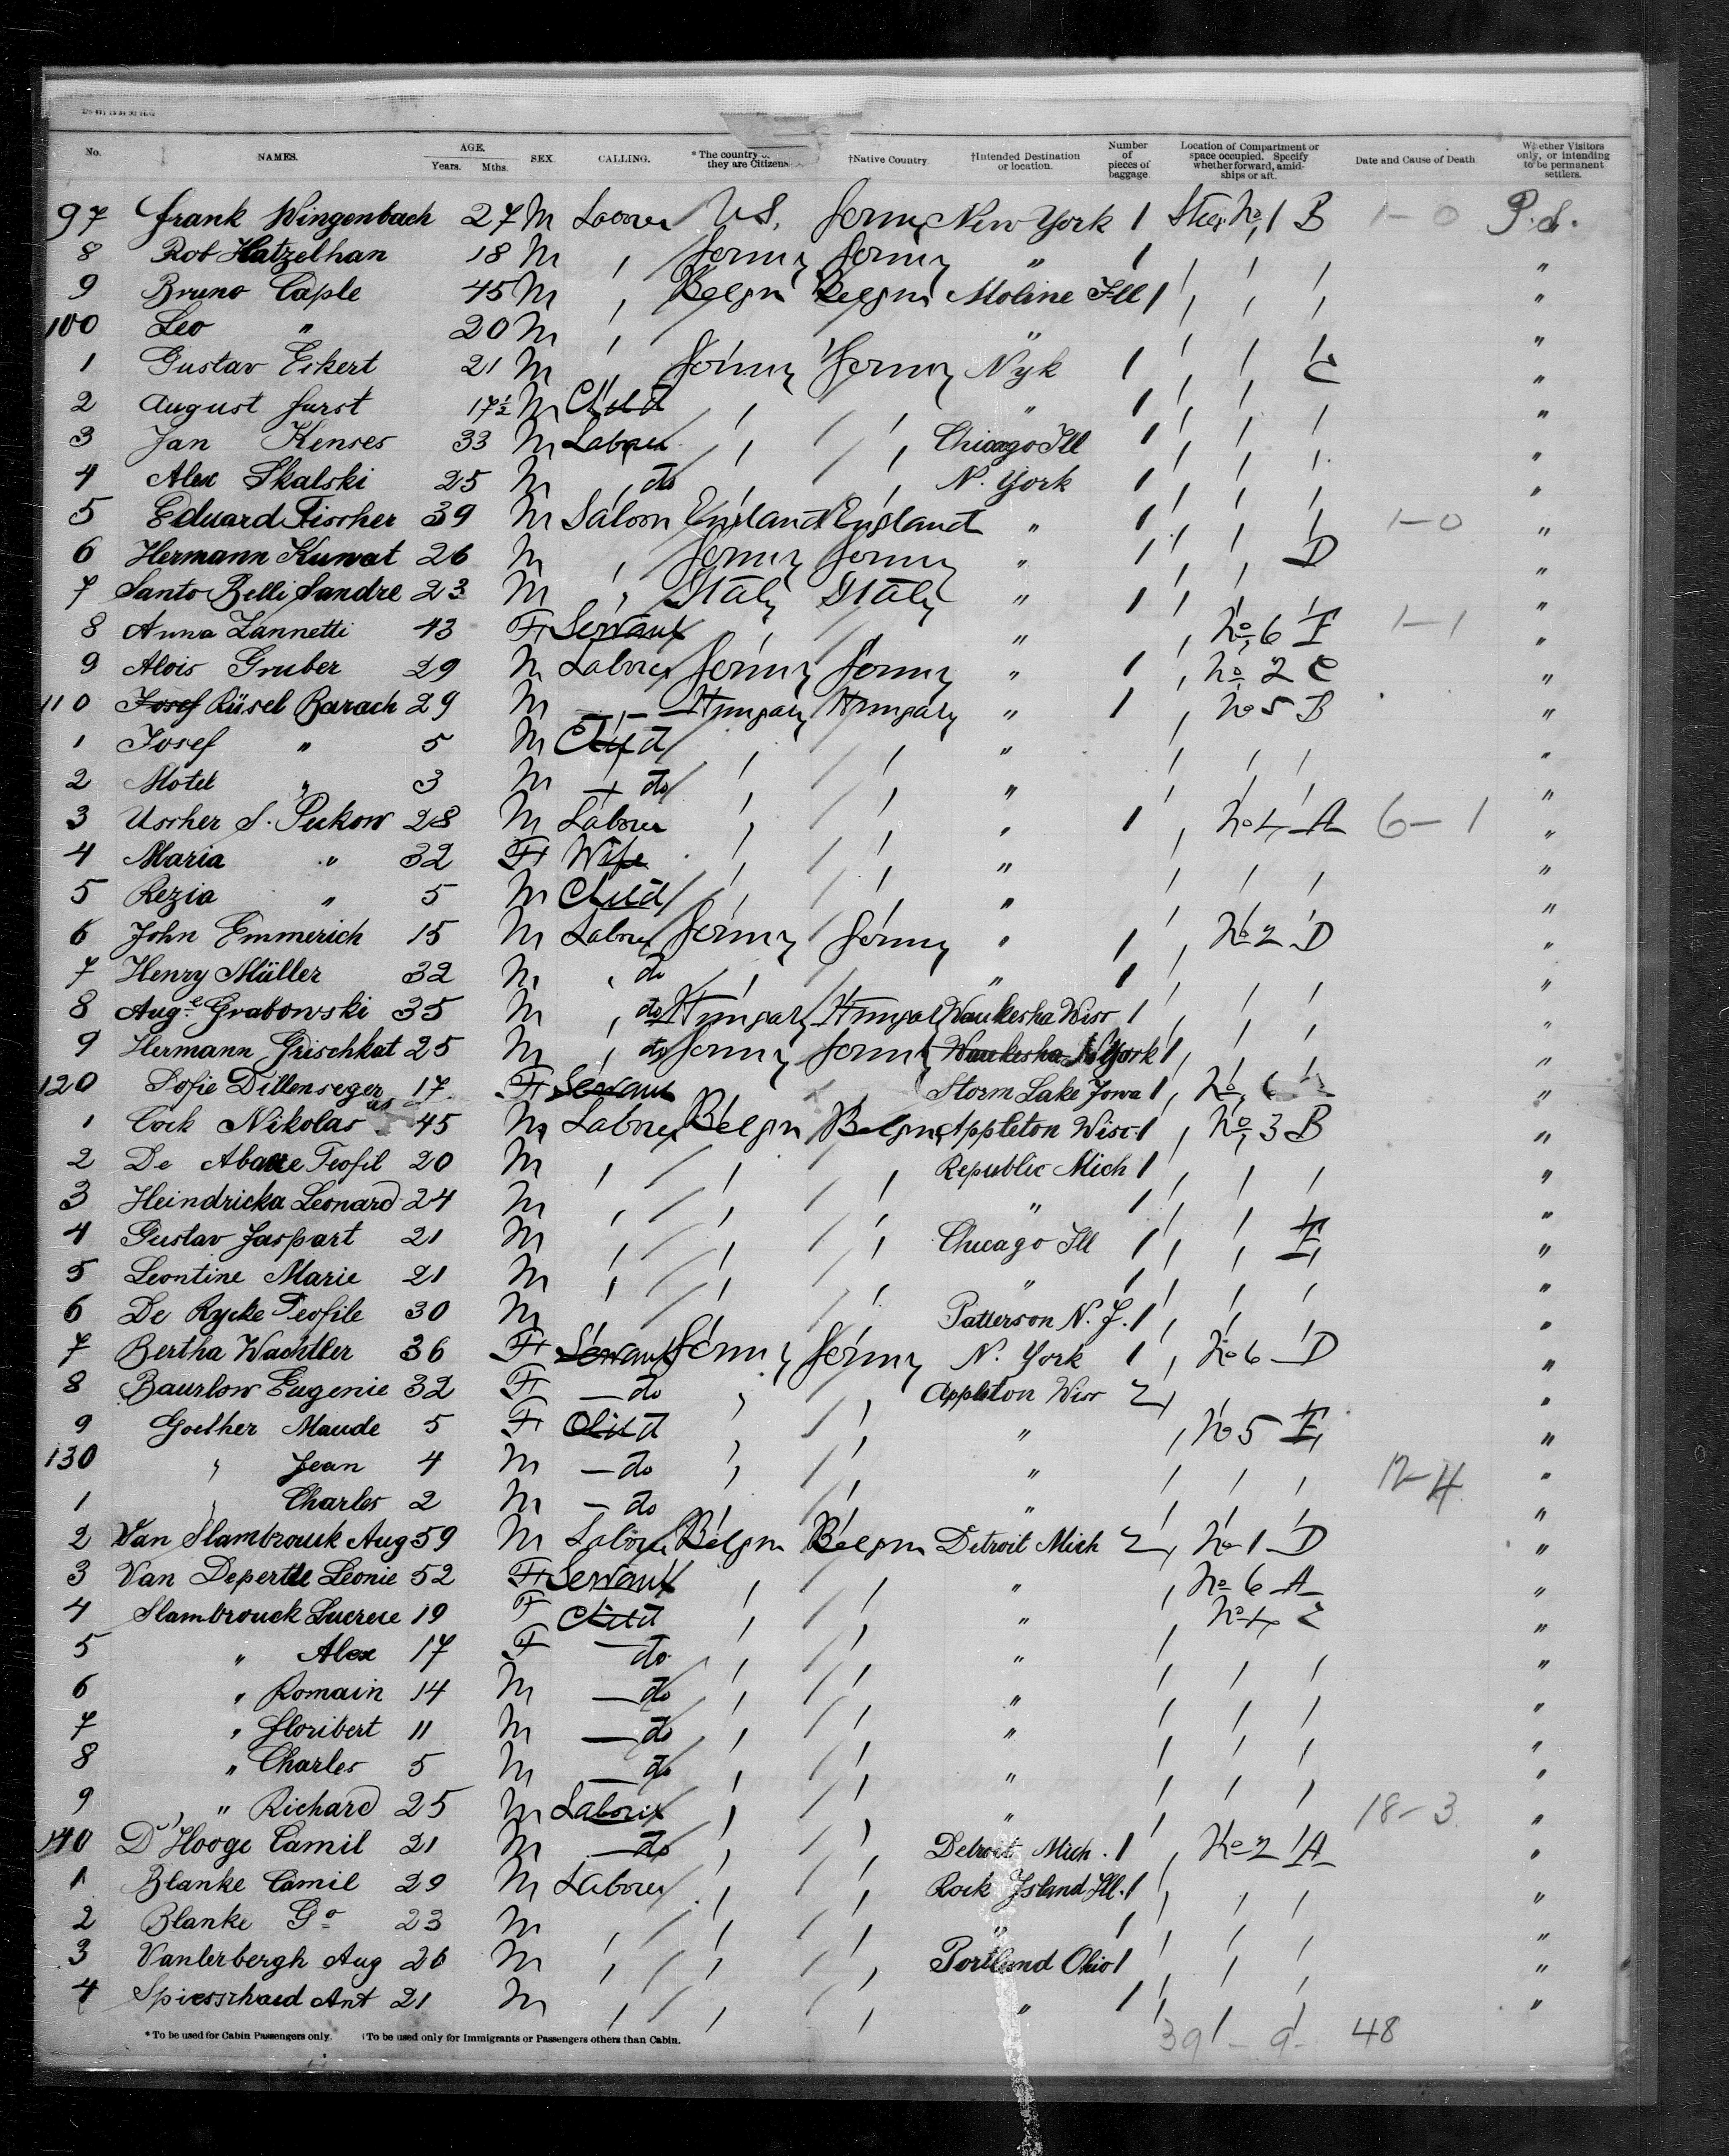 No. NAMES. AGE. Years. Mths. SEX. CALLING. *The country of they are Citizens. †Native Country. †Intended Destination or location. Number of pieces of baggage. Location of Compartment or space occupied. Specify whether forward, amidships or aft. Date and Cause of Death. Whether Visitors only, or intending to be permanent settlers.
97 Frank Wingenbach 27 M Laborer U.S. Germy New York 1 Steer. No 1 B 1-0 P.S.
8 Rob Hatzelhan 18 M " Germy Germy " 1 " " " "
9 Bruno Caple 45 M " Belgm Belgm Moline Ill 1 " " " "
100 Leo " 20 M " " " " "
1 Gustav Eckert 21 M " Germy Germy N.yk 1 " " C "
2 August Furst 17½ M Child " " " 1 " " " "
3 Jan Kenses 33 M Laborer " " Chicago Ill 1 " " " "
4 Alex Skalski 25 M do " " N. York 1 " " " "
5 Eduard Fischer 39 M Saloon England England " 1 " " " 1-0 "
6 Hermann Kuwat 26 M " Germy Germy " 1 " " D "
7 Santo Belli Sandre 23 M " Italy Italy " 1 " " " "
8 Anna Zannetti 43 F Servant " " " " No 6 E 1-1 "
9 Alois Gruber 29 M Laborer Germy Germy " 1 " No 2 C "
110 Josef Rüsel Barach 29 M " Hungary Hungary " 1 " No 5 B "
1 Josef " 5 M Child " " " " " " "
2 Motel " 3 M do " " " " " " "
3 Usscher S. Pukow 28 M Laborer " " " 1 " No 4 A 6-1 "
4 Maria " 32 F Wife " " " " " " "
5 Rezia " 5 M Child " " " " " " "
6 John Emmerich 15 M Laborer Germy Germy " 1 " No 2 D "
7 Henry Müller 32 M do " " " 1 " " " "
8 Auge Grabowski 35 M do Hungary Hungary Waukesha Wisc 1 " " " "
9 Hermann Grischkat 25 M do Germy Germy Waukesha N York 1 " " " "
120 Sofie Dillenseger 17 F Servant " " Storm Lake Iowa 1 " No 6 "
1 Cock Nikolas 45 M Laborer Belgm Belgm Appleton Wisc. 1 " No 3 B "
2 De Abare Teofil 20 M " " " Republic Mich 1 " " " "
3 Heindricka Leonard 24 M " " " " 1 " " " "
4 Gustav Jaspart 21 M " " " Chicago Ill 1 " " E "
5 Leontine Marie 21 M " " " " 1 " " " "
6 De Rycke Teofile 30 M " " " Patterson N.J. 1 " " " "
7 Bertha Wachtler 36 F Servant Germy Germy N. York 1 " No 6 D "
8 Baurlow Eugenie 32 F do " " Appleton Wisc 2 "
9 Goether Maude 5 F Child " " " " No 5 E "
130 " Jean 4 M do " " " " " " 12-4 "
1 " Charles 2 M do " " " " " "
2 Van Slambrouk Aug 59 M Laborer Belgm Belgm Detroit Mich 2 " No 1 D "
3 Van Depertte Leonie 52 F Servant " " " " No 6 A "
4 Slambrouck Lucrece 19 F Child " " " No 4 "
5 " Alex 17 F do " " " " "
6 " Romain 14 M do " " " " " " "
7 " Floribert 11 M do " " " " " " "
8 " Charles 5 M do " " " " " " "
9 " Richard 25 M Laborer " " " " " " 18-3 "
140 D'Hooge Camil 21 M do " " Detroit Mich. 1 " No 2 A "
1 Blanke Camil 29 M Laborer " " Rock Island Ill. 1 " " " "
2 Blanke Go 23 M " " " " 1 " " " "
3 Vanlerbergh Aug 26 M " " " Portland Ohio 1 " " " "
4 Spiesschaed Ant 21 M " " " " 1 " " " "
*To be used for Cabin Passengers only. †To be used only for Immigrants or Passengers others than Cabin. 39 - 9 - 48